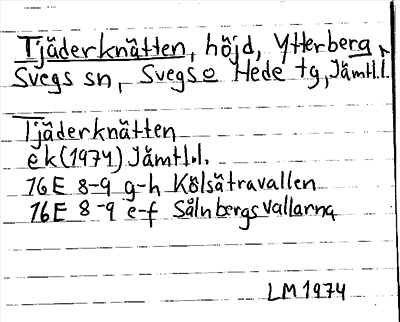 Tjäderknätten, höjd, Ytterberg,
Svegs sn, Svegs o Hede tg, Jämtl.l.
Tjäderknätten
ek (1974) Jämtl.l.
16E 8-9 g-h Kölsätravallen
16E 8-9 e-f Sålnbergsvallarna
LM 1974